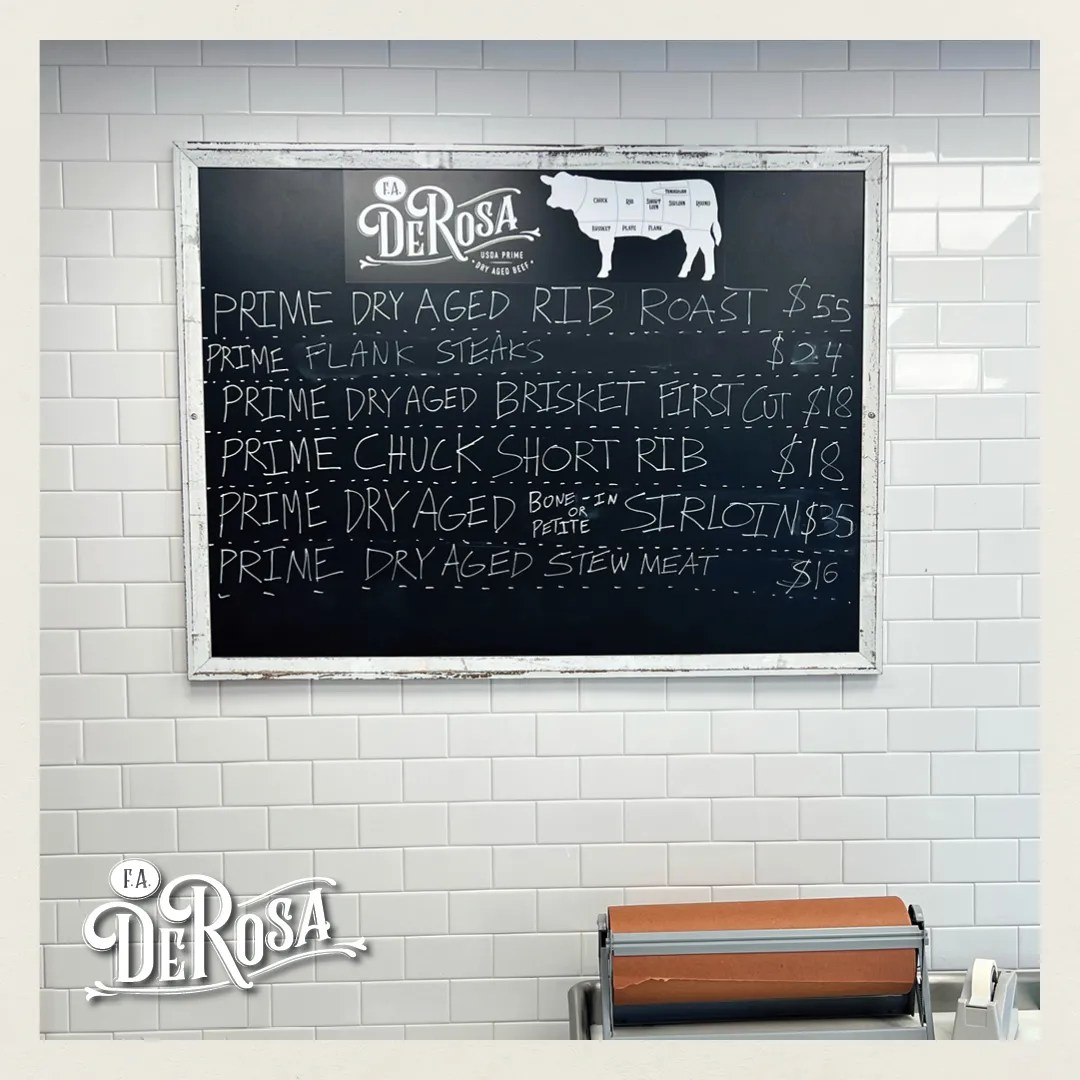 F.A.
DEROSA
USDA PRIME
• DRY AGED BEEF •
CHUCK RIB SHORT LOIN TENDERLOIN SIRLOIN ROUND
BRISKET PLATE FLANK
PRIME DRY AGED RIB ROAST $55
PRIME FLANK STEAKS $24
PRIME DRY AGED BRISKET FIRST CUT $18
PRIME CHUCK SHORT RIB $18
PRIME DRY AGED BONE-IN OR PETITE SIRLOIN $35
PRIME DRY AGED STEW MEAT $16
F.A.
DEROSA